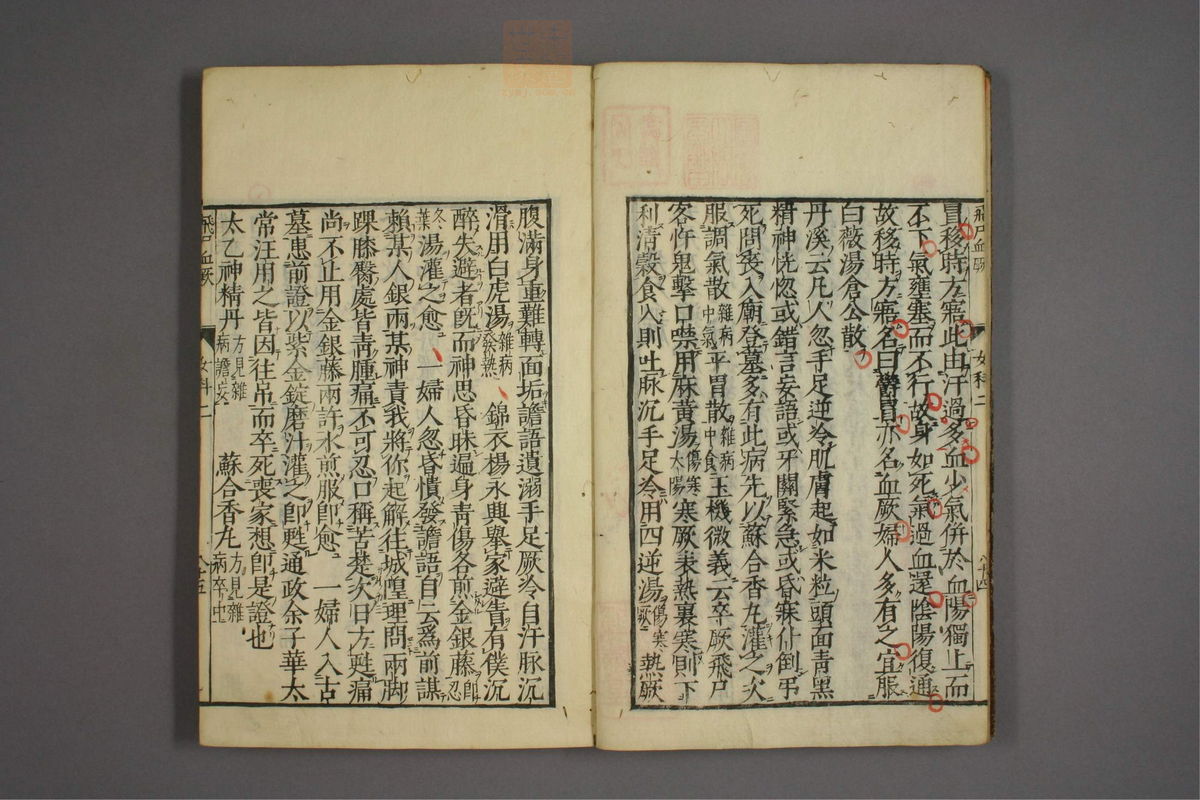 冒移時方寤此由汗過多血少氣併於血陽獨上而
不下氣壅塞而不行故身如死氣過血還陰陽復通
故移時方寤名曰鬱冒亦名血厥婦人多有之宜服
白薇湯倉公散
丹溪云凡人忽手足逆冷肌膚起如米粒頭面青黑
精神恍惚或錯言妄語或牙關緊急或昏寐仆倒弔
死問喪入廟登墓多有此病先以蘇合香丸灌之次
服調氣散雜病中氣平胃散雜病中食玉機微義云卒厥飛尸
客忤鬼擊口噤用麻黃湯傷寒太陽寒厥表熱裏寒則下
利清穀食入則吐脉沉手足冷用四逆湯傷寒厥熱厥
飛尸血厥
女科二
八十四
腹滿身重難轉面垢譫語遺溺手足厥冷自汗脉沉
滑用白虎湯雜病發熱錦衣楊永興舉家避青有僕沉
醉失避者既而神思昏昧遍身青傷各煎金銀藤即忍
冬葉湯灌之愈一婦人忽昏憒發譫語自云爲前謀
賴某人銀兩某神責我將你起解往城隍理問兩脚
踝膝臀處皆青腫痛不可忍口稱苦楚次日方甦痛
尚不止用金銀藤兩許水煎服即愈一婦人入古
墓患前證以紫金錠磨汁灌之即甦通政余子華太
常汪用之皆因往弔而卒死喪家想即是證也
太乙神精丹方見雜病譫妄蘇合香丸方見雜病卒中
飛尸血厥
女科二
八十五